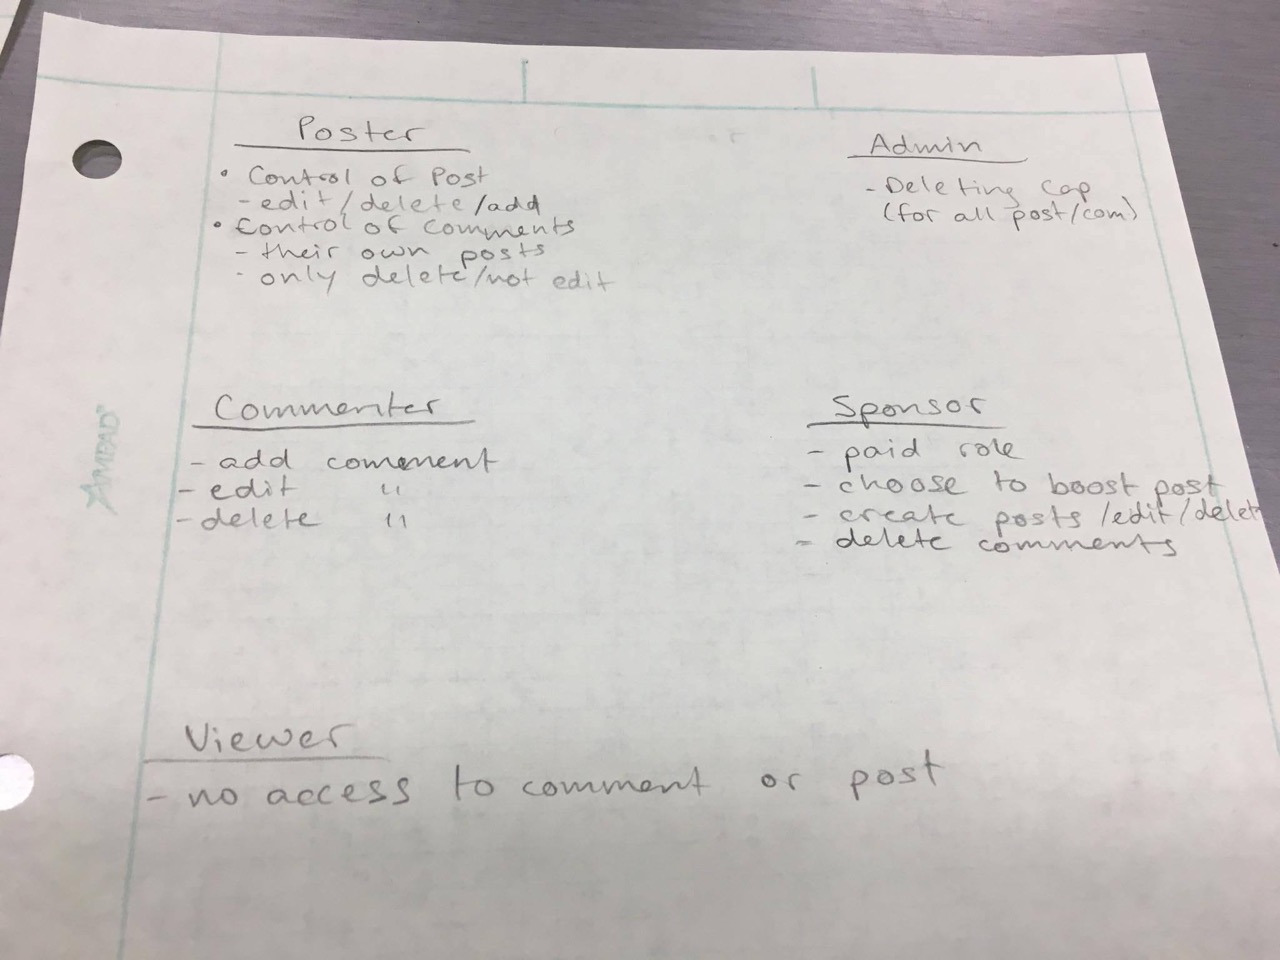 Poster
• Control of Post
- edit/delete/add
• Control of comments
- their own posts
- only delete/not edit
Admin
- Deleting Cap
(for all post/com)
Commenter
- add comment
- edit "
- delete "
Sponsor
- paid role
- choose to boost post
- create posts /edit/delet
- delete comments
Viewer
- no access to comment or post
AMPAD